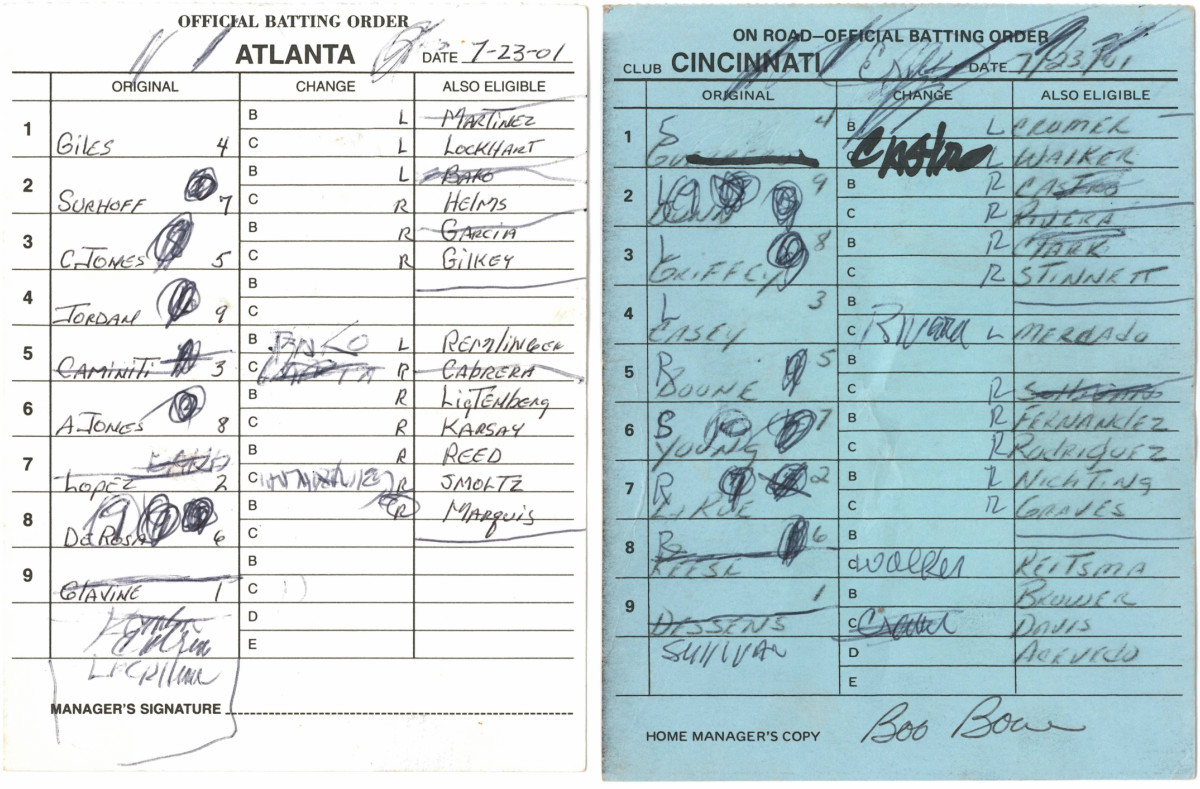 OFFICIAL BATTING ORDER
ATLANTA DATE 7-23-01
ORIGINAL CHANGE ALSO ELIGIBLE
1 GILES 4 B L MARTINEZ
C L LOCKHART
2 SURHOFF 7 B L BAKO
C R HELMS
3 C.JONES 5 B R GARCIA
C R GILKEY
4 JORDAN 9 B
C
5 CAMINITI 3 B BAKO L REMLINGER
C R CABRERA
6 A.JONES 8 B R LIGTENBERG
C R KARSAY
7 LOPEZ 2 B R REED
C R SMOLTZ
8 DEROSA 6 B R MARQUIS
C
9 GLAVINE 1 B
C
D
E
MANAGER'S SIGNATURE
ON ROAD—OFFICIAL BATTING ORDER
CLUB CINCINNATI DATE 7/23/01
ORIGINAL CHANGE ALSO ELIGIBLE
1 S 4 B Castro L CROMER
C L WALKER
2 9 B R CASTRO
C R RIVERA
3 L GRIFFEY 8 B R CLARK
C R STINNETT
4 L CASEY 3 B
C Rivera L MERCADO
5 R BOONE 5 B
C R
6 S YOUNG 7 B R FERNANDEZ
C R RODRIGUEZ
7 R LARUE 2 B R NICHTING
C R GRAVES
8 R REESE 6 B
C Walker REITSMA
9 DESSENS 1 B BROWER
C DAVIS
SULLIVAN D ACEVEDO
E
HOME MANAGER'S COPY Bob Boone